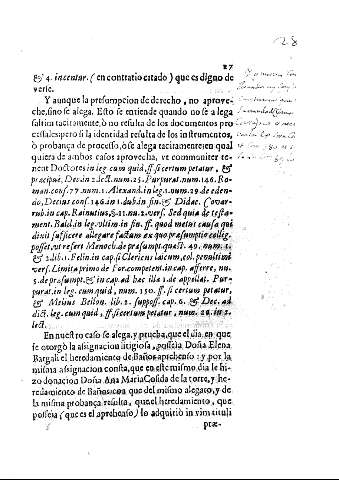 27
28
& 4. incentar. (en contratio citado) que es digno de
verse.
Y aunque la presumpcion de derecho, no aprove-
che, sino se alega. Esto se entiende quando no se alega
saltim tacitamente, ò no resulta de los documentos pro
cessales pero si la identidad resulta de los instrumentos,
ò probança de processo, ò se alega tacitamente en qual
quiera de ambos casos aprovecha, ut communiter te-
nent Doctores in leg. cum quid, ff. si certum petatur, &
præcipuè, Deci. in 2. lect. num. 25. Purpurat. num. 146. Ro-
man. cons. 77. num. 1. Alexand. in leg. 1. num. 29. de eden-
do, Decius cons. 146. in 1. dub. in fin. & Didac. Covar-
rub. in cap. Rainutius, §. 11. nu. 2. vers. Sed quia de testa-
ment. Bald. in leg. ultim. in fin. ff. quod metus causa qui
dixit sufficere allegare factum ex quo præsumptio collig.
posset, ut refert Menoch. de præsumpt. quæst. 49. num. 2.
& 2. lib. 1. Felin. in cap. si Clericus laicum, col. penultimi
vers. Limita primo de For. competent. in cap. afferre, nu.
5. de præsumpt. & in cap. ad hæc illa 1. de appellat. Pur-
purat. in leg. cum quid, num. 150. ff. si certum petatur,
& Melius Bellon. lib. 2. supposs. cap. 6. & Dec. ad
dict. leg. cum quid, ff. si certum petatur, num. 20. in 2.
lect.
En nuestro caso se alega, y prueba, que el dia en que
se otorgò la assignacion litigiosa, posseìa Doña Elena
Bargali el heredamiento de Baños aprehenso: y por la
misma assignacion consta, que en este mismo dia le hi-
zo donacion Doña Ana Maria Cosida de la torre, y he-
redamiento de Baños, con que del mismo alegato, y de
la misma probança resulta, que el heredamiento, que
posseìa (que es el aprehenso) lo adquiriò in vim tituli
præ-